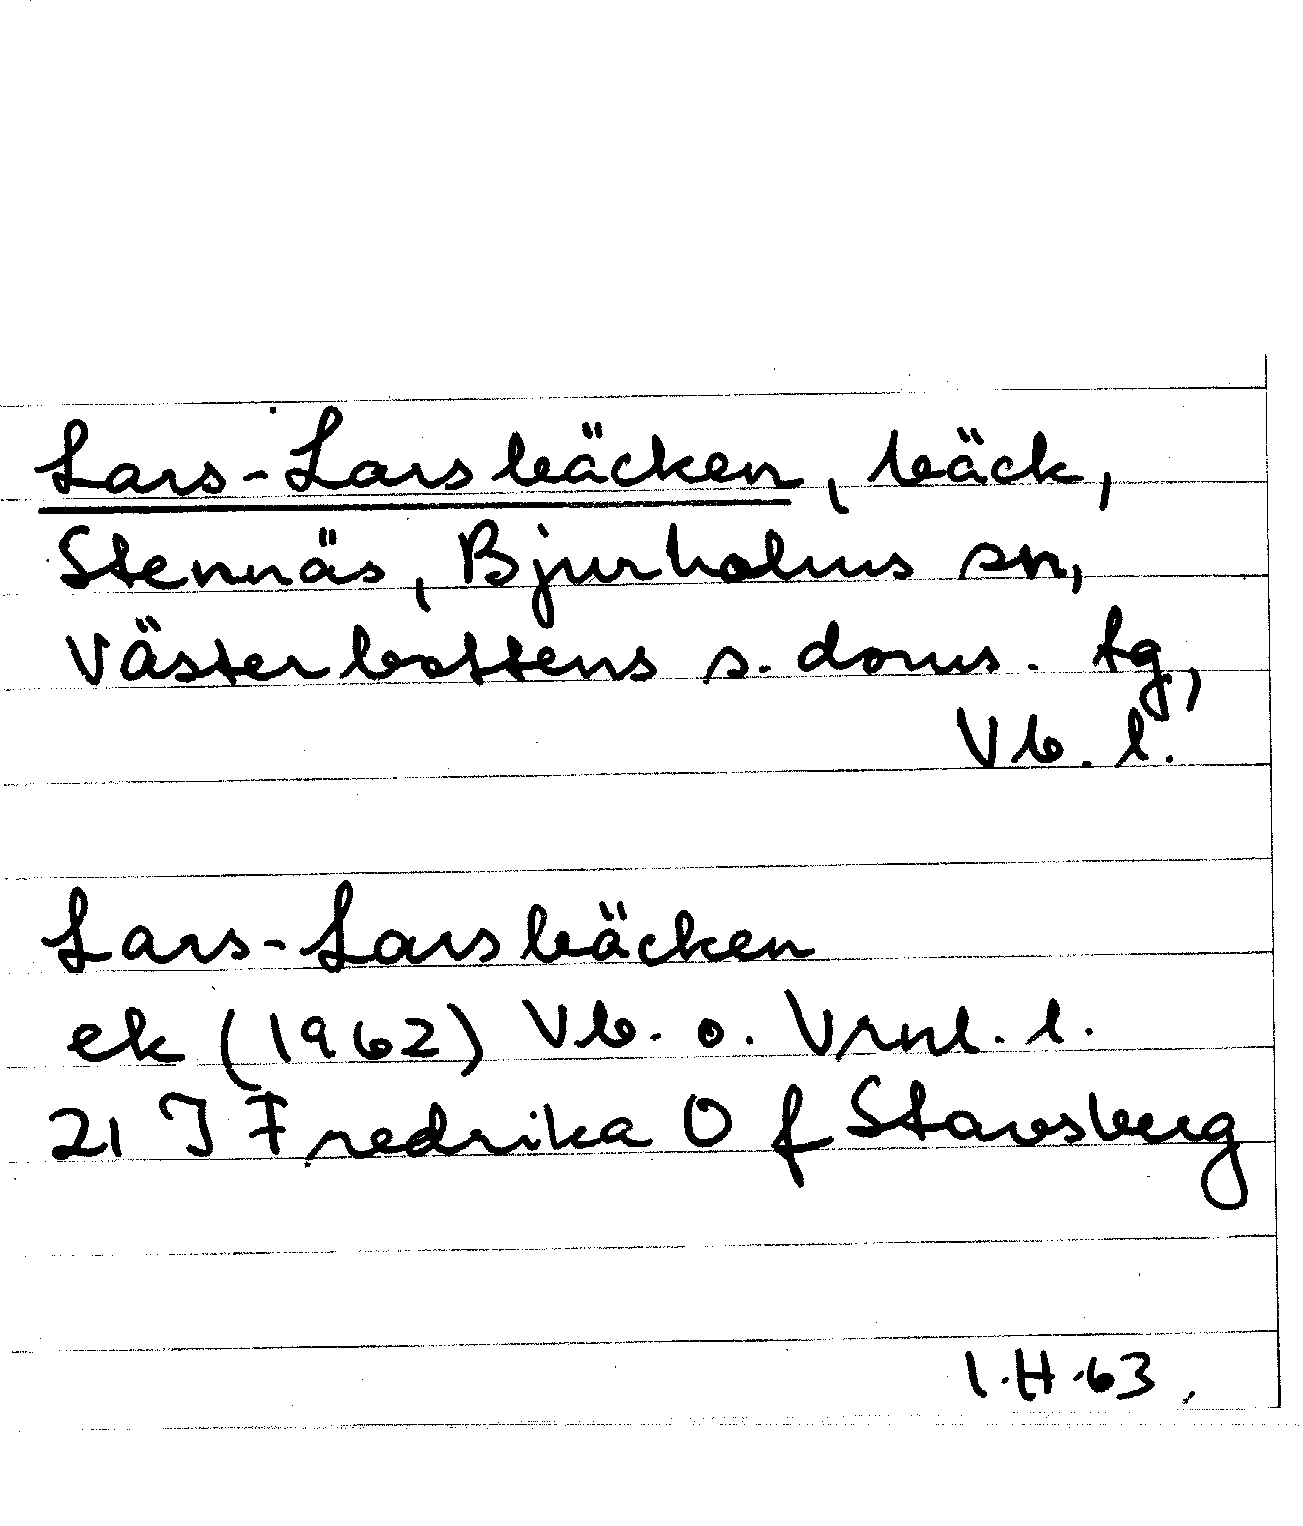 Lars-Larsbäcken, bäck,
Stennäs, Bjurholms sn,
Västerbottens s. doms. tg,
Vb. l.
Lars-Larsbäcken
ek (1962) Vb. o. Vrml. l.
21 J Fredrika O f Stavsberg
I.H.63.